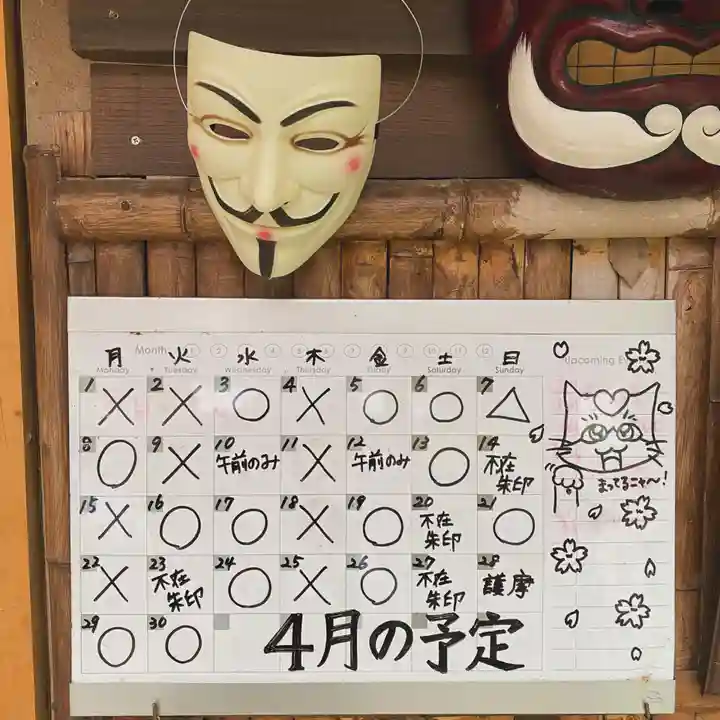 Month 1 2 3 4 5 6 7 8 9 10 11 12
月 火 水 木 金 土 日
Monday Tuesday Wednesday Thursday Friday Saturday Sunday Upcoming
1 2 3 4 5 6 7
× × ○ × ○ ○ △
8 9 10 11 12 13 14
○ × 午前のみ × 午前のみ ○ 不在
朱印
15 16 17 18 19 20 21
× ○ ○ × ○ 不在 ○
朱印
まってるニャ〜!
22 23 24 25 26 27 28
× 不在 ○ × ○ 不在 護摩
朱印 朱印
29 30
○ ○
4月の予定